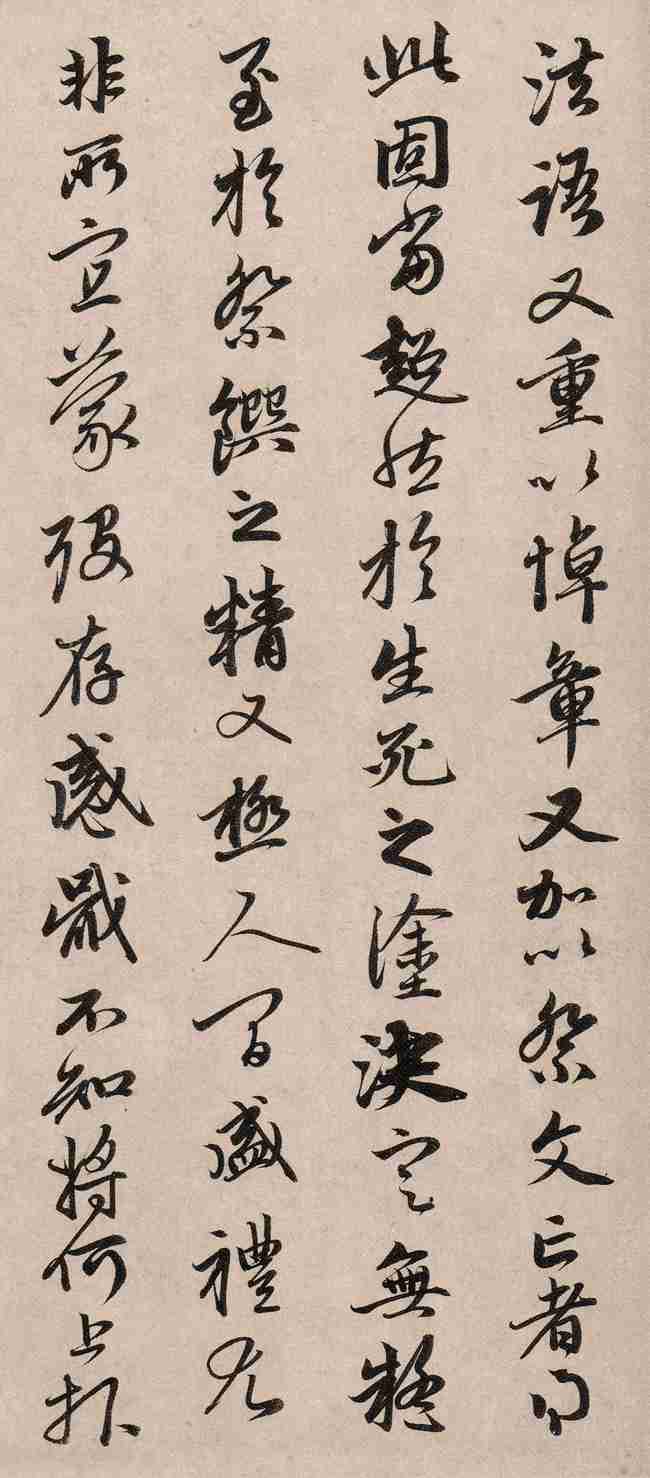 法语又重以悼章又加以祭文亡者得
此固當超然於生死之塗決定無疑
至於祭饌之精又極人間盛禮尤
非所宜蒙歿存感戢不知將何上報